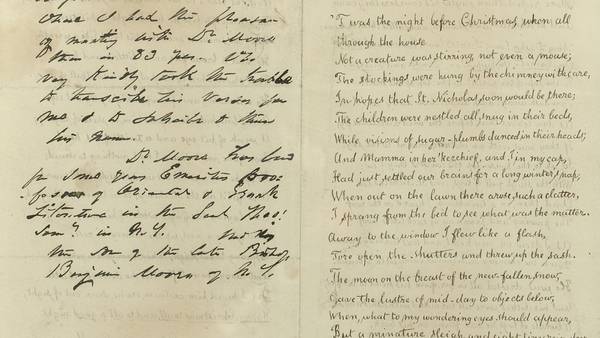 I had the pleasure
of meeting with Dr. Moore
then in 83 year.
very kindly took the trouble
to transcribe his verses for
me & to subscribe to them
his name.
Dr. Moore has been
for some years Emeritus Pro-
fessor of Oriental & Greek
Literature in the
in N.Y. 
the son of the late Bishop
Benjamin Moore of N.Y.
'Twas the night before Christmas, when all
through the house
Not a creature was stirring, not even a mouse;
The stockings were hung by the chimney with care,
In hopes that St. Nicholas soon would be there;
The children were nestled all snug in their beds,
While visions of sugar-plumbs danced in their heads;
And Mamma in her 'kerchief, and I in my cap,
Had just settled our brains for a long winter's nap;
When out on the lawn there arose such a clatter,
I sprang from the bed to see what was the matter.
Away to the window I flew like a flash,
Tore open the shutters and threw up the sash.
The moon on the breast of the new-fallen snow,
Gave the lustre of mid-day to objects below,
When, what to my wondering eyes should appear,
But a minature sleigh and eight tiny